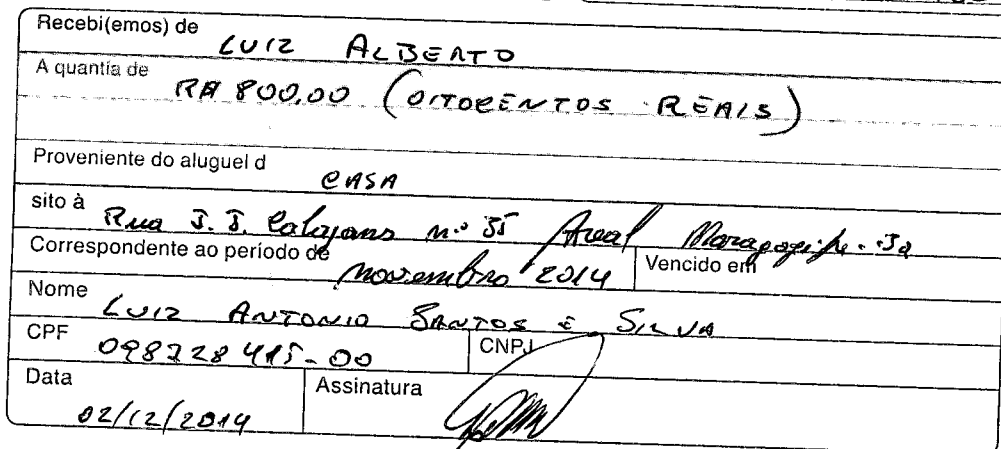 Recebi(emos) de LUIZ ALBERTO
A quantia de R$ 800,00 (OITOCENTOS REAIS)
Proveniente do aluguel d CASA
sito à Rua J. J. Calazans n.º 35 Areal Maragogipe-Ba
Correspondente ao período de novembro 2014 Vencido em
Nome LUIZ ANTONIO SANTOS E SILVA
CPF 098728415-00 CNPJ
Data Assinatura
02/12/2014